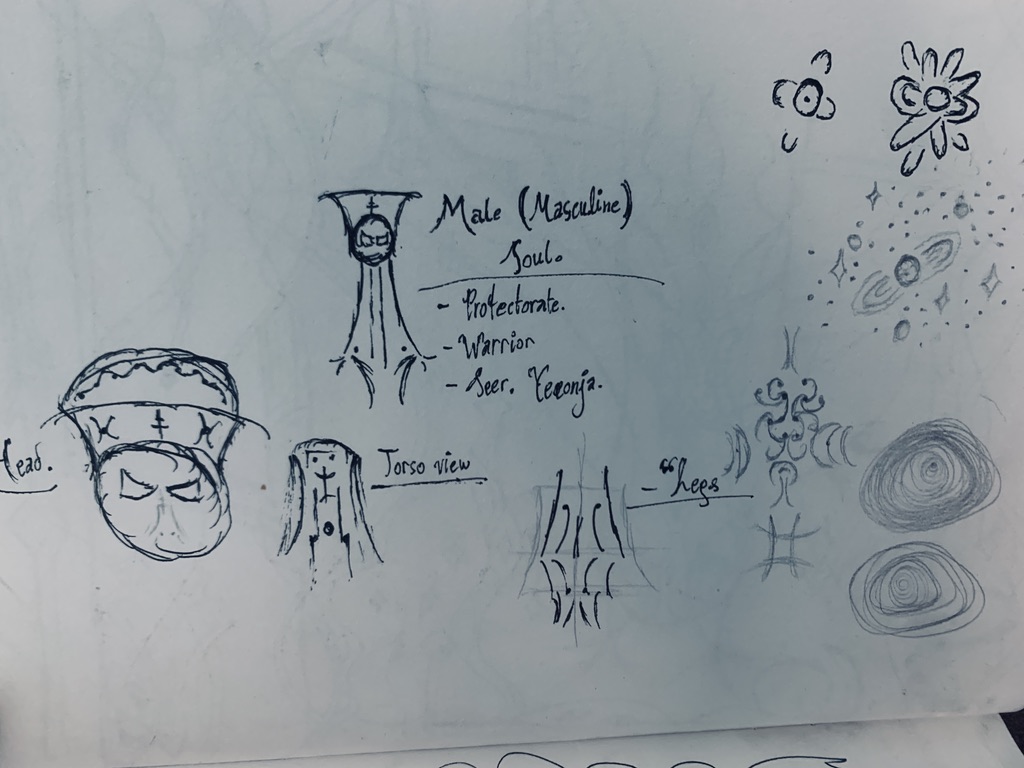 Male (Masculine)
Soul.
- Protectorate.
- Warrior
- Seer.
Head.
Torso view
- "Legs